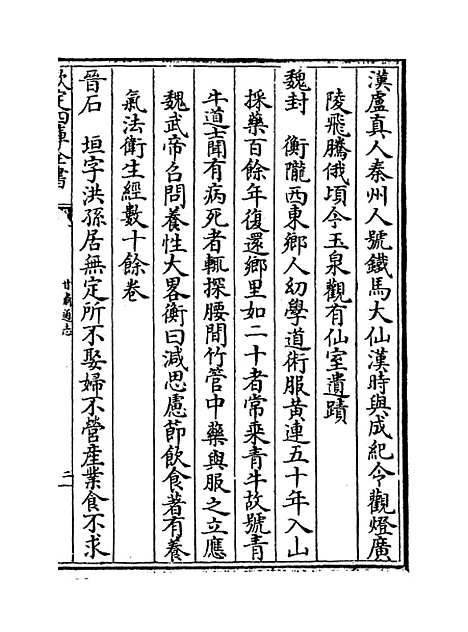 漢盧真人秦州人號鐵馬大仙漢時與成紀令觀燈廣
陵飛騰俄頃今玉泉觀有仙室遺蹟
魏封　衡隴西東鄉人幼學道術服黄連五十年入山
採藥百餘年復還鄉里如二十者常乗青牛故號青
牛道士聞有病死者輒探腰間竹管中藥與服之立應
魏武帝召問養性大畧衡曰減思慮節飲食著有養
氣法衛生經數十餘卷
晉石　垣字洪孫居無定所不娶婦不營産業食不求
欽定四庫全書
甘肅通志
二